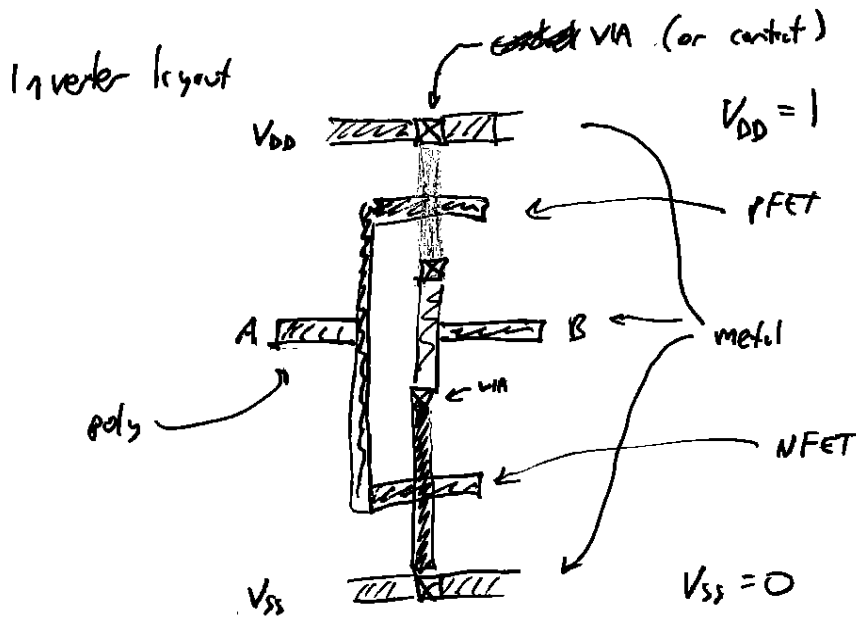 Inverter layout
VIA (or contact)
VDD
VDD = 1
pFET
A
B
metal
VIA
poly
NFET
VSS
VSS = 0